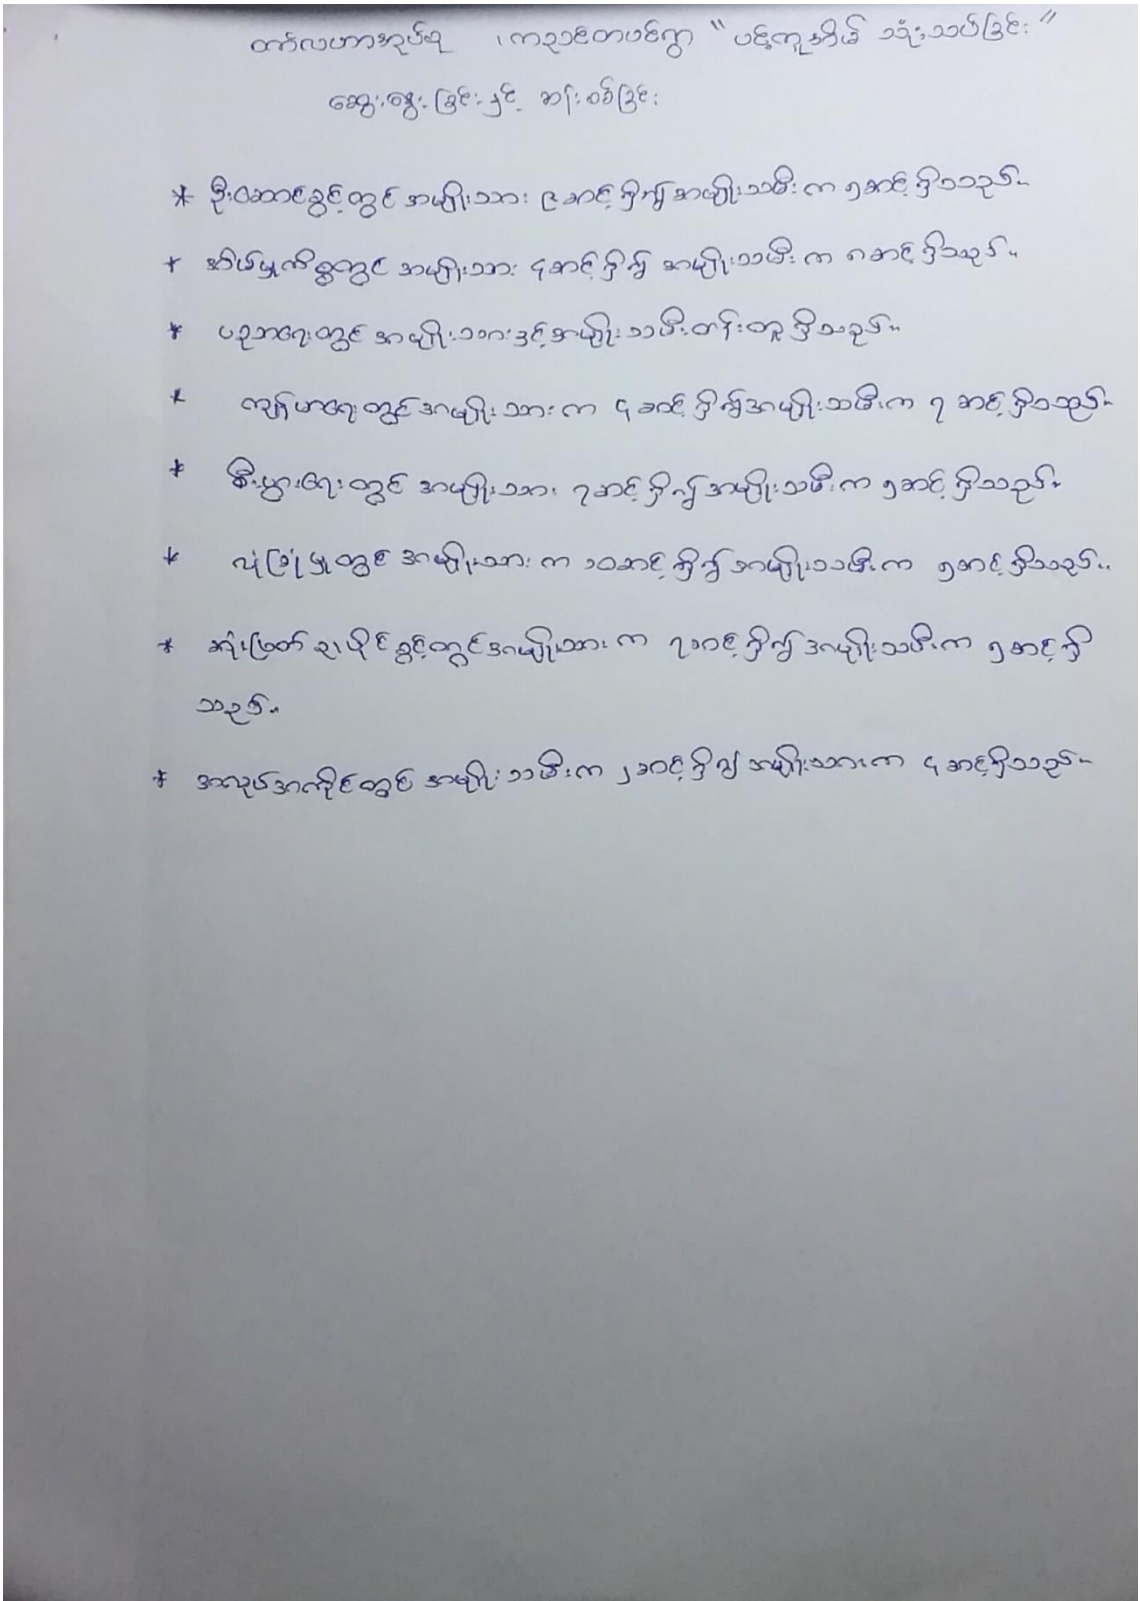 တာ်လဟာအုပ်စု ၊ ကညင်တပင်ရွာ " ပင့်ကူအိမ် သုံးသပ်ခြင်း "
ဆွေးနွေးခြင်းနှင့် ဆန်းစစ်ခြင်း
* ဦးဆောင်ခွင့်တွင် အမျိုးသား ၉ ဆင့်ရှိ၍ အမျိုးသမီးက ၅ဆင့်ရှိသည်။
* အိမ်မှုကိစ္စတွင် အမျိုးသား ၄ဆင့်ရှိ၍ အမျိုးသမီးက ၈ဆင့်ရှိသည်။
* ပညာရေးတွင် အမျိုးသားနှင့်အမျိုးသမီးတန်းတူရှိသည်။
* ကျန်းမာရေးတွင် အမျိုးသားက ၄ ဆင့်ရှိ၍အမျိုးသမီးက ၇ ဆင့်ရှိသည်။
* စီးပွားရေးတွင် အမျိုးသား ၇ဆင့်ရှိ၍ အမျိုးသမီးက ၅ဆင့်ရှိသည်။
* လုံခြုံမှုတွင် အမျိုးသားက ၁၀ဆင့်ရှိ၍ အမျိုးသမီးက ၅ဆင့်ရှိသည်။
* ဆုံးဖြတ်ပိုင်ခွင့်တွင်အမျိုးသားက ၇ဆင့်ရှိ၍ အမျိုးသမီးက ၅ဆင့်ရှိ
သည်။
* အလုပ်အကိုင်တွင် အမျိုးသမီးက ၂ဆင့်ရှိ၍ အမျိုးသားက ၄ ဆင့်ရှိသည်။